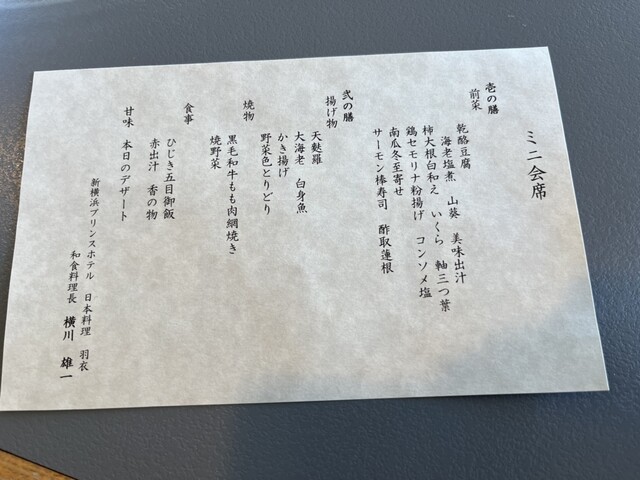 ミニ会席
壱の膳
前菜
乾酪豆腐
海老塩煮　山葵　美味出汁
柿大根白和え　いくら　軸三つ葉
鶏セモリナ粉揚げ　コンソメ塩
南瓜冬至寄せ
サーモン棒寿司　酢取蓮根
弐の膳
揚げ物
天麩羅
大海老　白身魚
かき揚げ
野菜色とりどり
焼物
黒毛和牛もも肉網焼き
焼野菜
食事
ひじき五目御飯
赤出汁　香の物
甘味　本日のデザート
新横浜プリンスホテル　日本料理　羽衣
和食料理長　横川　雄一